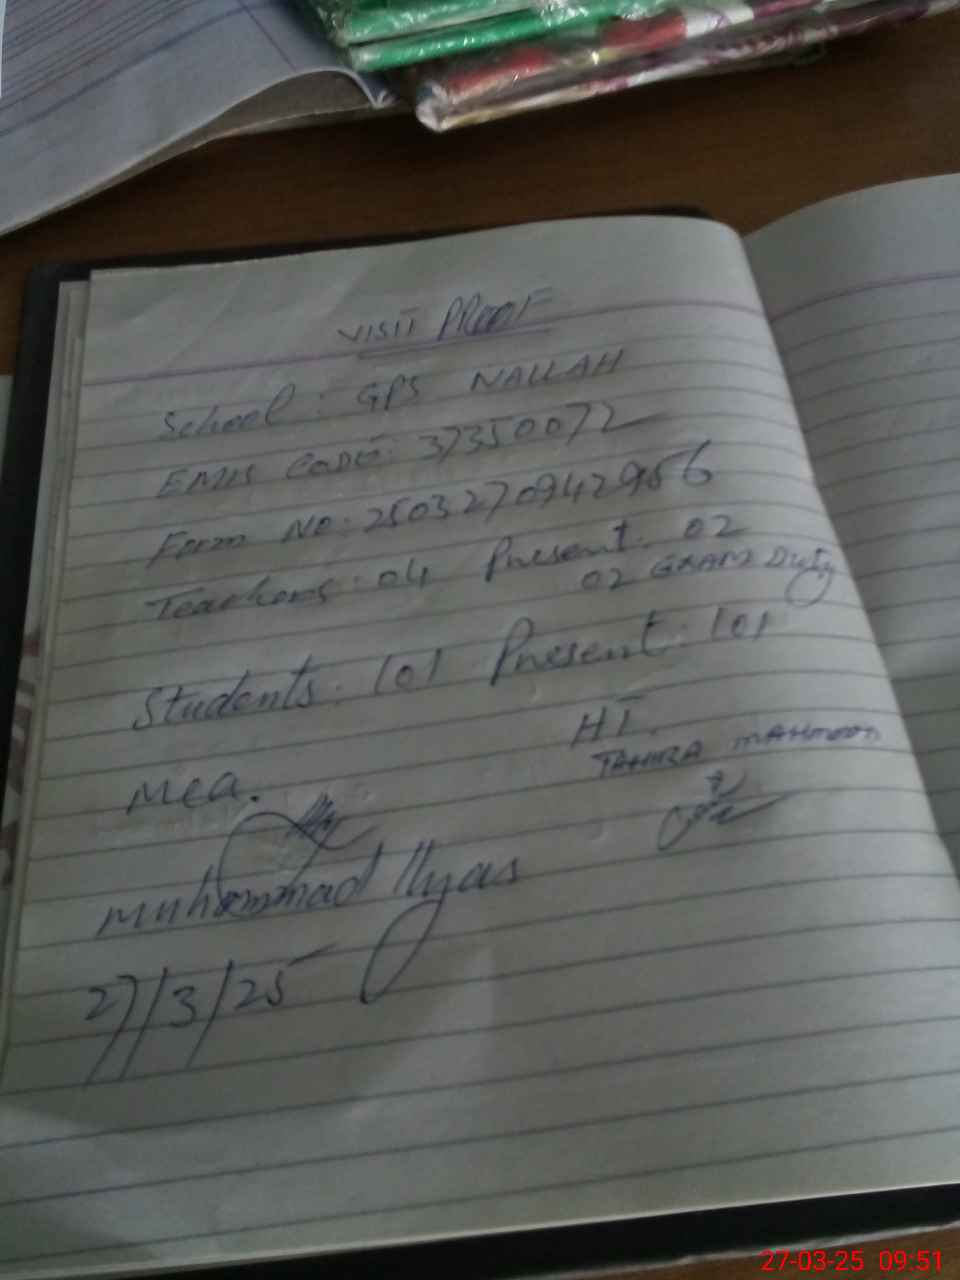 VISIT PROOF
School: GPS NALLAH
EMIS CODE: 37350072
Form NO: 25032709429956
Teachers: 04 Present: 02
02 EXAM Duty
Students: 101 Present: 101
HT.
TAHIRA MAHMOOD
MEA.
Muhammad Ilyas
27/3/25
27-03-25 09:51